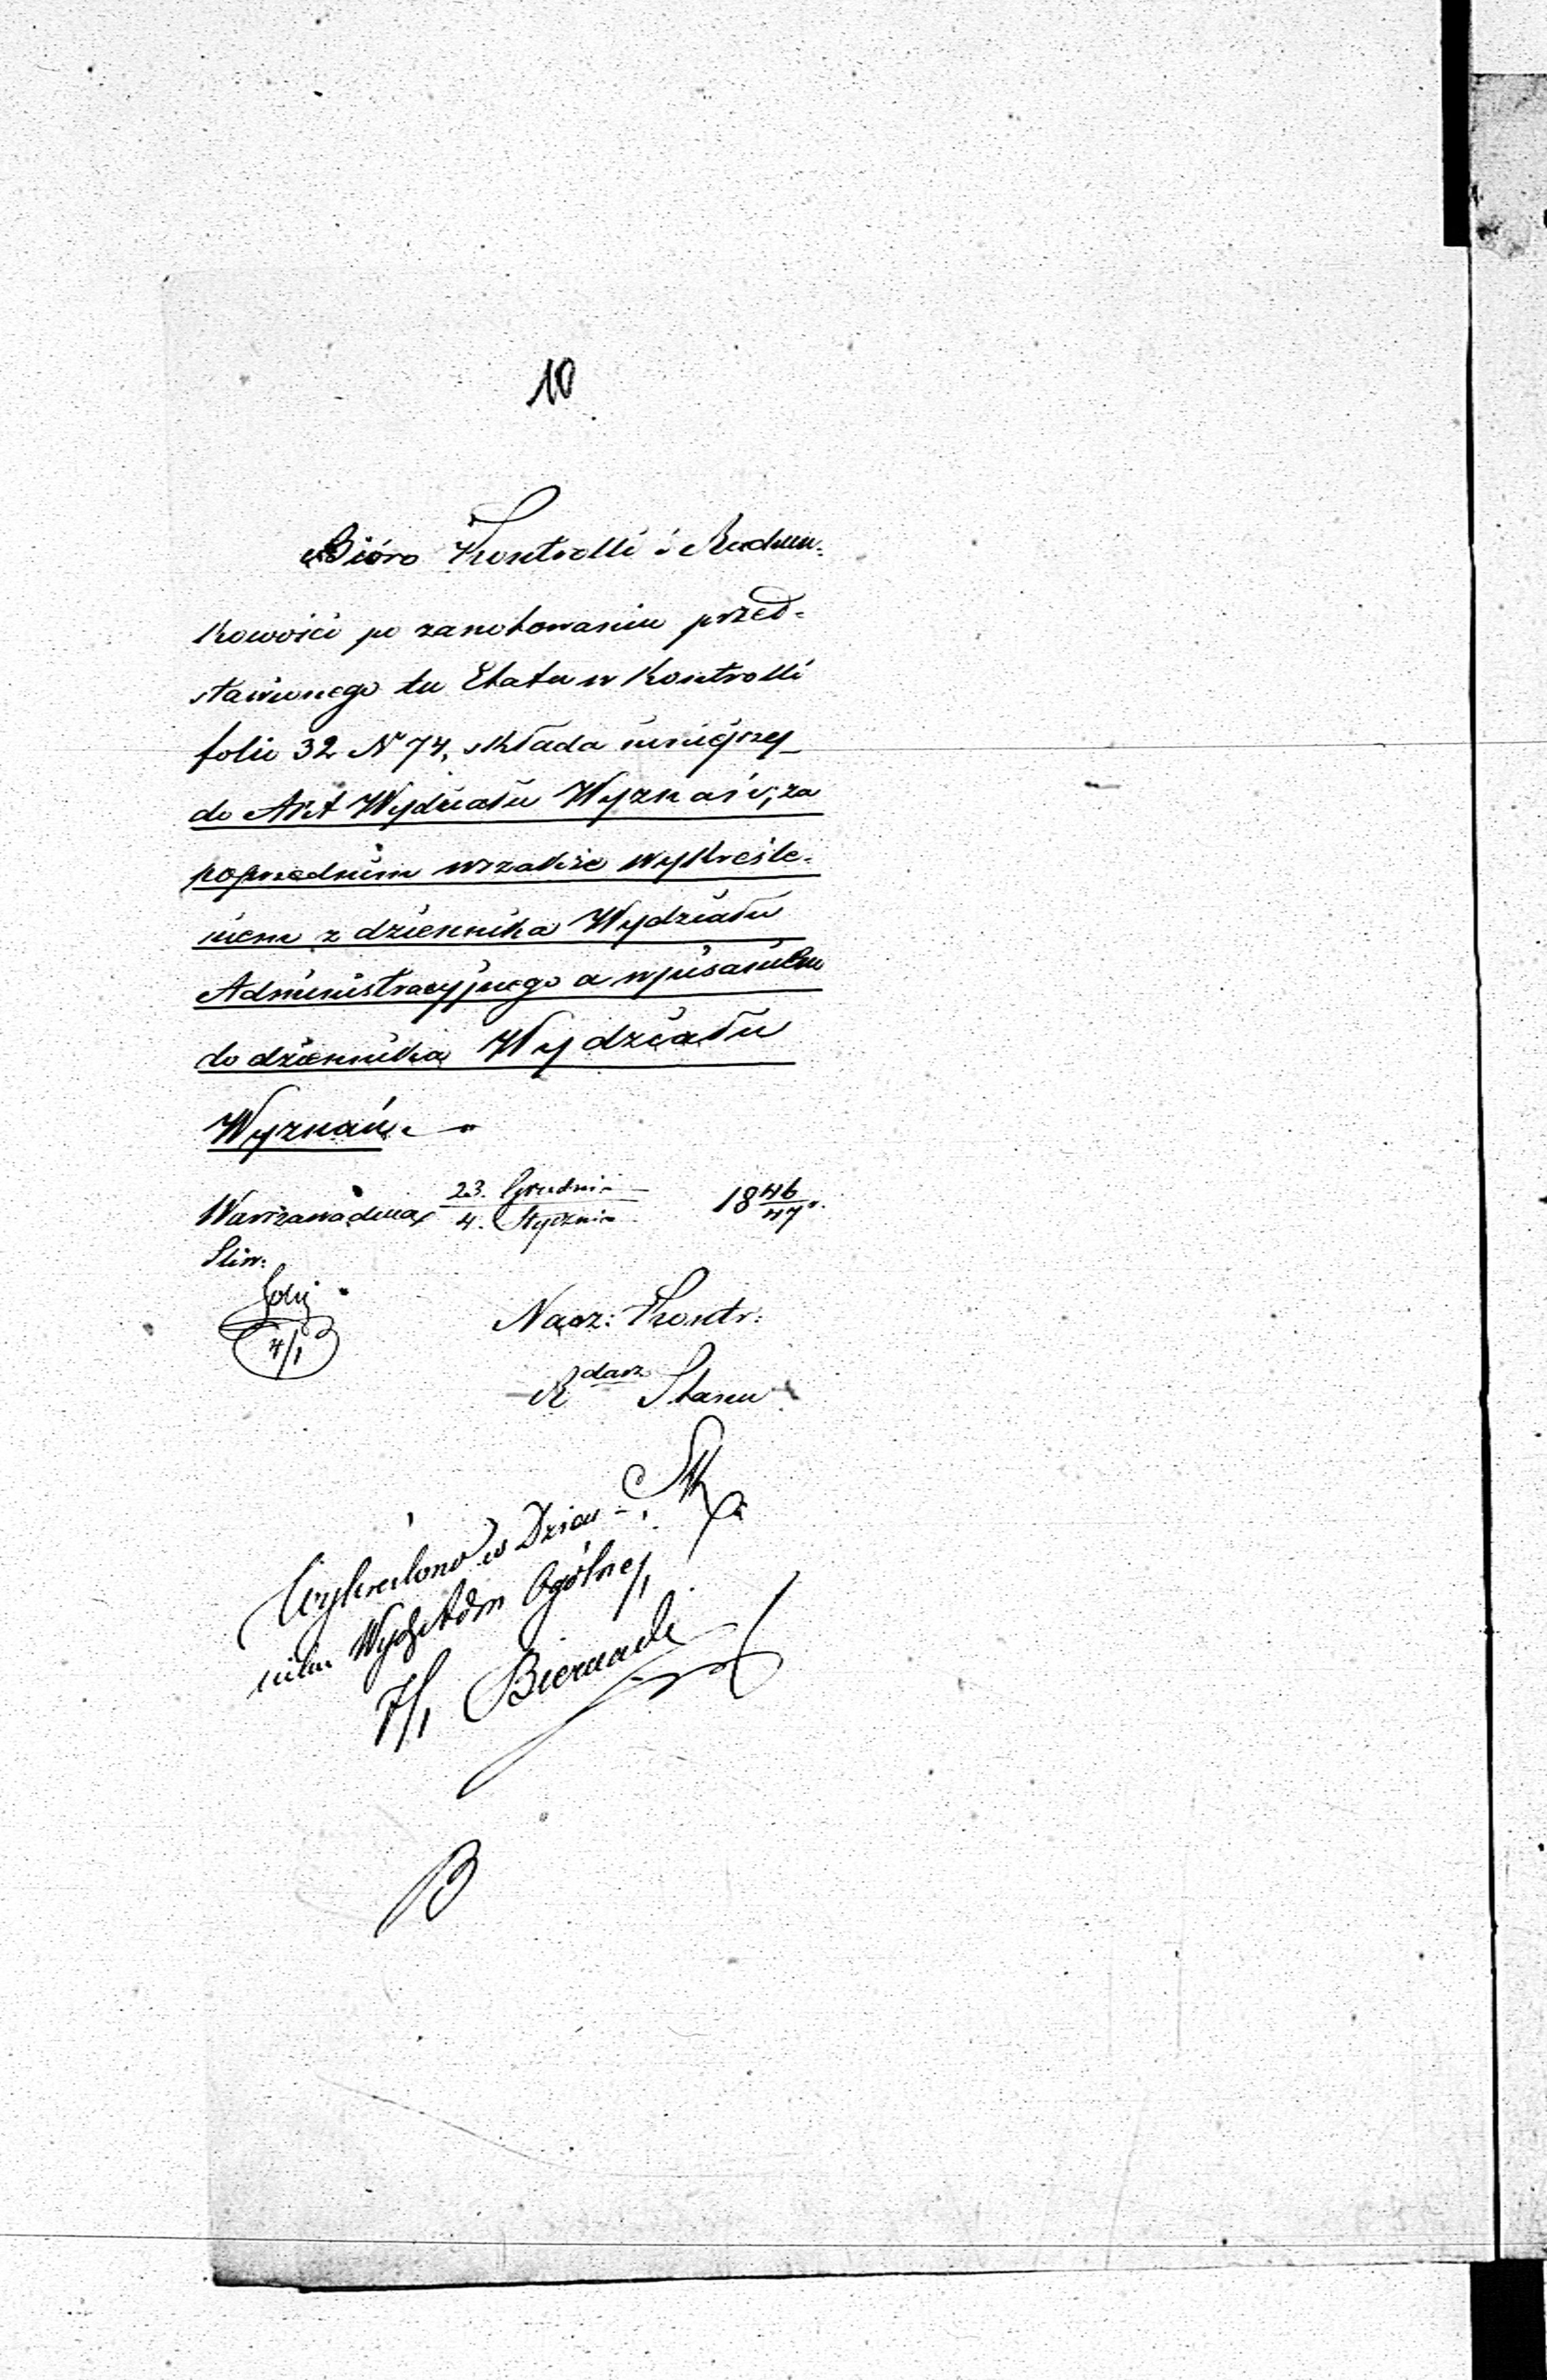 10
Bióro Kontrolli i Rachun-
kowości po zanotowaniu przed-
stawionego tu Etatu w Kontrolli
folio 32 N 74, składa niniejszy
do Akt Wydziału Wyznań, za
poprzednim wszakże wykreśle-
niem z dziennika Wydziału
Administracyjnego a wpisaniem
do dziennika Wydziału
Wyznań.
Warszawa dnia 23. Grudnia / 4. Stycznia 18 46/47 r.
Sliw:
4/1
Nacz: Kontr:
R darz Stanu
Wykreślono w Dzien-
niku Wydz Adm Ogólnej
7/1 Biernacki
B